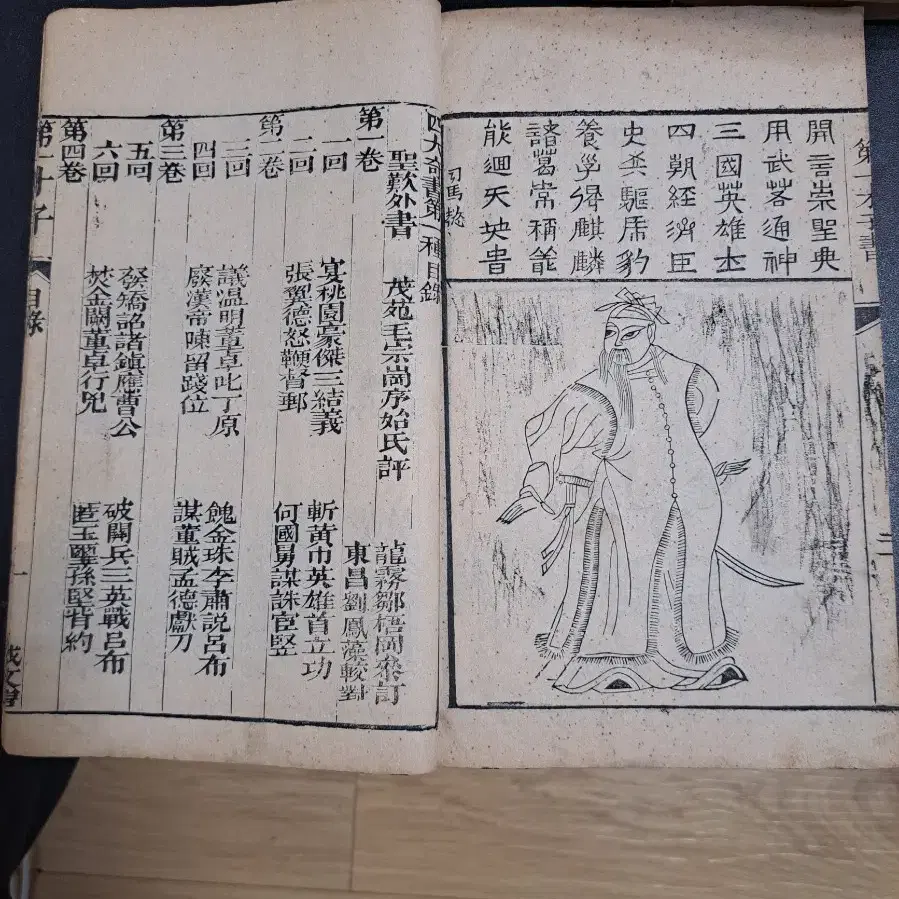 第一才子書
二
開言崇聖典
用武畧通神
三國英雄士
四朝經濟臣
兵驅虎豹
養得麒麟
諸葛常稱羨
能迴天地
司馬懿
四大奇書第一種目錄
聖歎外書 茂苑毛宗崗序始氏評
龍霧鄒梧岡叅訂
東昌劉鳳藻較對
第一卷
一回 宴桃園豪傑三結義 斬黃巾英雄首立功
二回 張翼德怒鞭督郵 何國舅謀誅宦竪
第二卷
三回 議溫明董卓叱丁原 餽金珠李肅說呂布
四回 廢漢帝陳留踐位 謀董賊孟德獻刀
第三卷
五回 發矯詔諸鎮應曹公 破關兵三英戰呂布
六回 焚金闕董卓行兇 匿玉璽孫堅背約
第四卷
第一才子 目錄 一